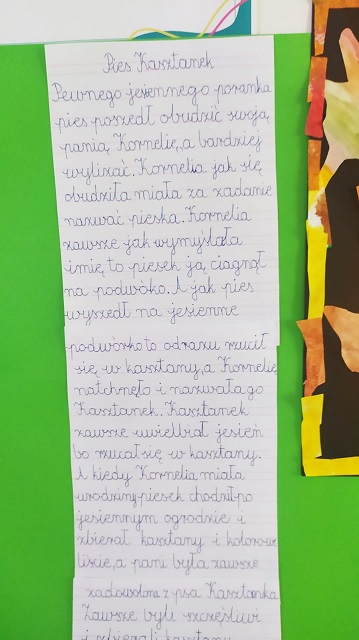 Pies Kasztanek
Pewnego jesiennego poranka
pies poszedł obudzić swoją
panią Kornelię, a bardziej
wylizać. Kornelia jak się
obudziła miała za zadanie
nazwać pieska. Kornelia
zawsze jak wymyślała
imię, to piesek ją ciągnął
na podwóko. A jak pies
wyszedł na jesienne
podwórko to odrazu rzucił
się w kasztany, a Kornelię
natchnęło i nazwała go
Kasztanek. Kasztanek
zawsze uwielbiał jesień
bo rzucał się w kasztany.
A kiedy Kornelia miała
urodziny piesek chodził po
jesiennym ogrodzie i
zbierał kasztany i kolorowe
liście, a pani była zawsze
zadowolona z psa Kasztanka
Zawsze byli szczęśliwi
i zbierali kasztany